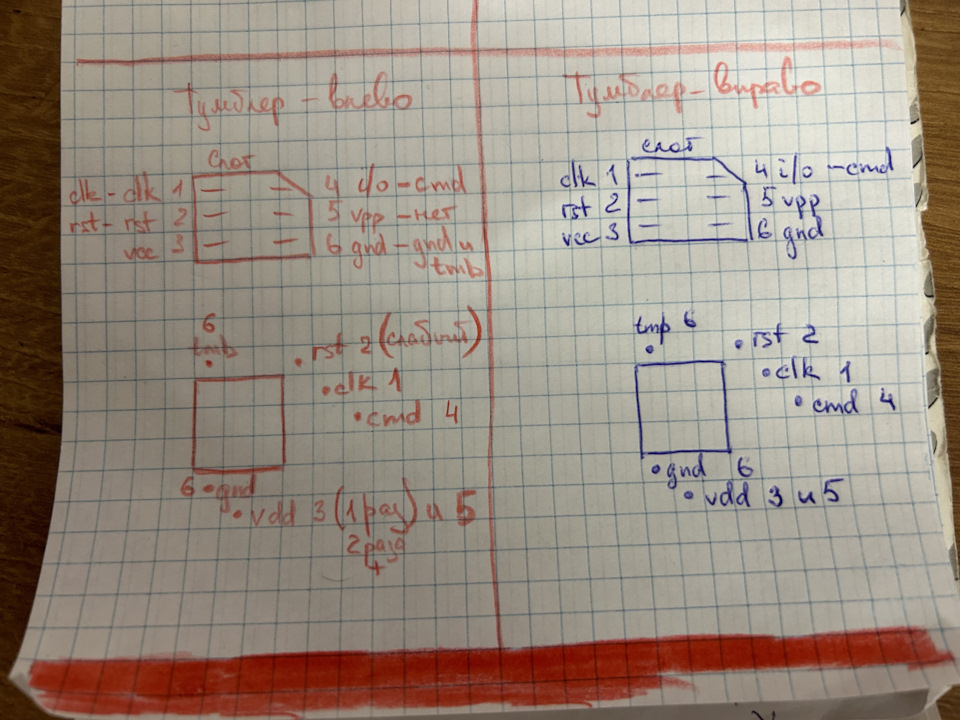 Тумблер - влево
Слот
clk - clk 1
rst - rst 2
vcc 3
4 i/o - cmd
5 vpp - нет
6 gnd - gnd и
tmb
6
tmb
rst 2 (слабый)
clk 1
cmd 4
6 gnd
vdd 3 (1 раз) и 5
2 раза
+
Тумблер - вправо
слот
clk 1
rst 2
vcc 3
4 i/o - cmd
5 vpp
6 gnd
tmp 6
rst 2
clk 1
cmd 4
gnd 6
vdd 3 и 5